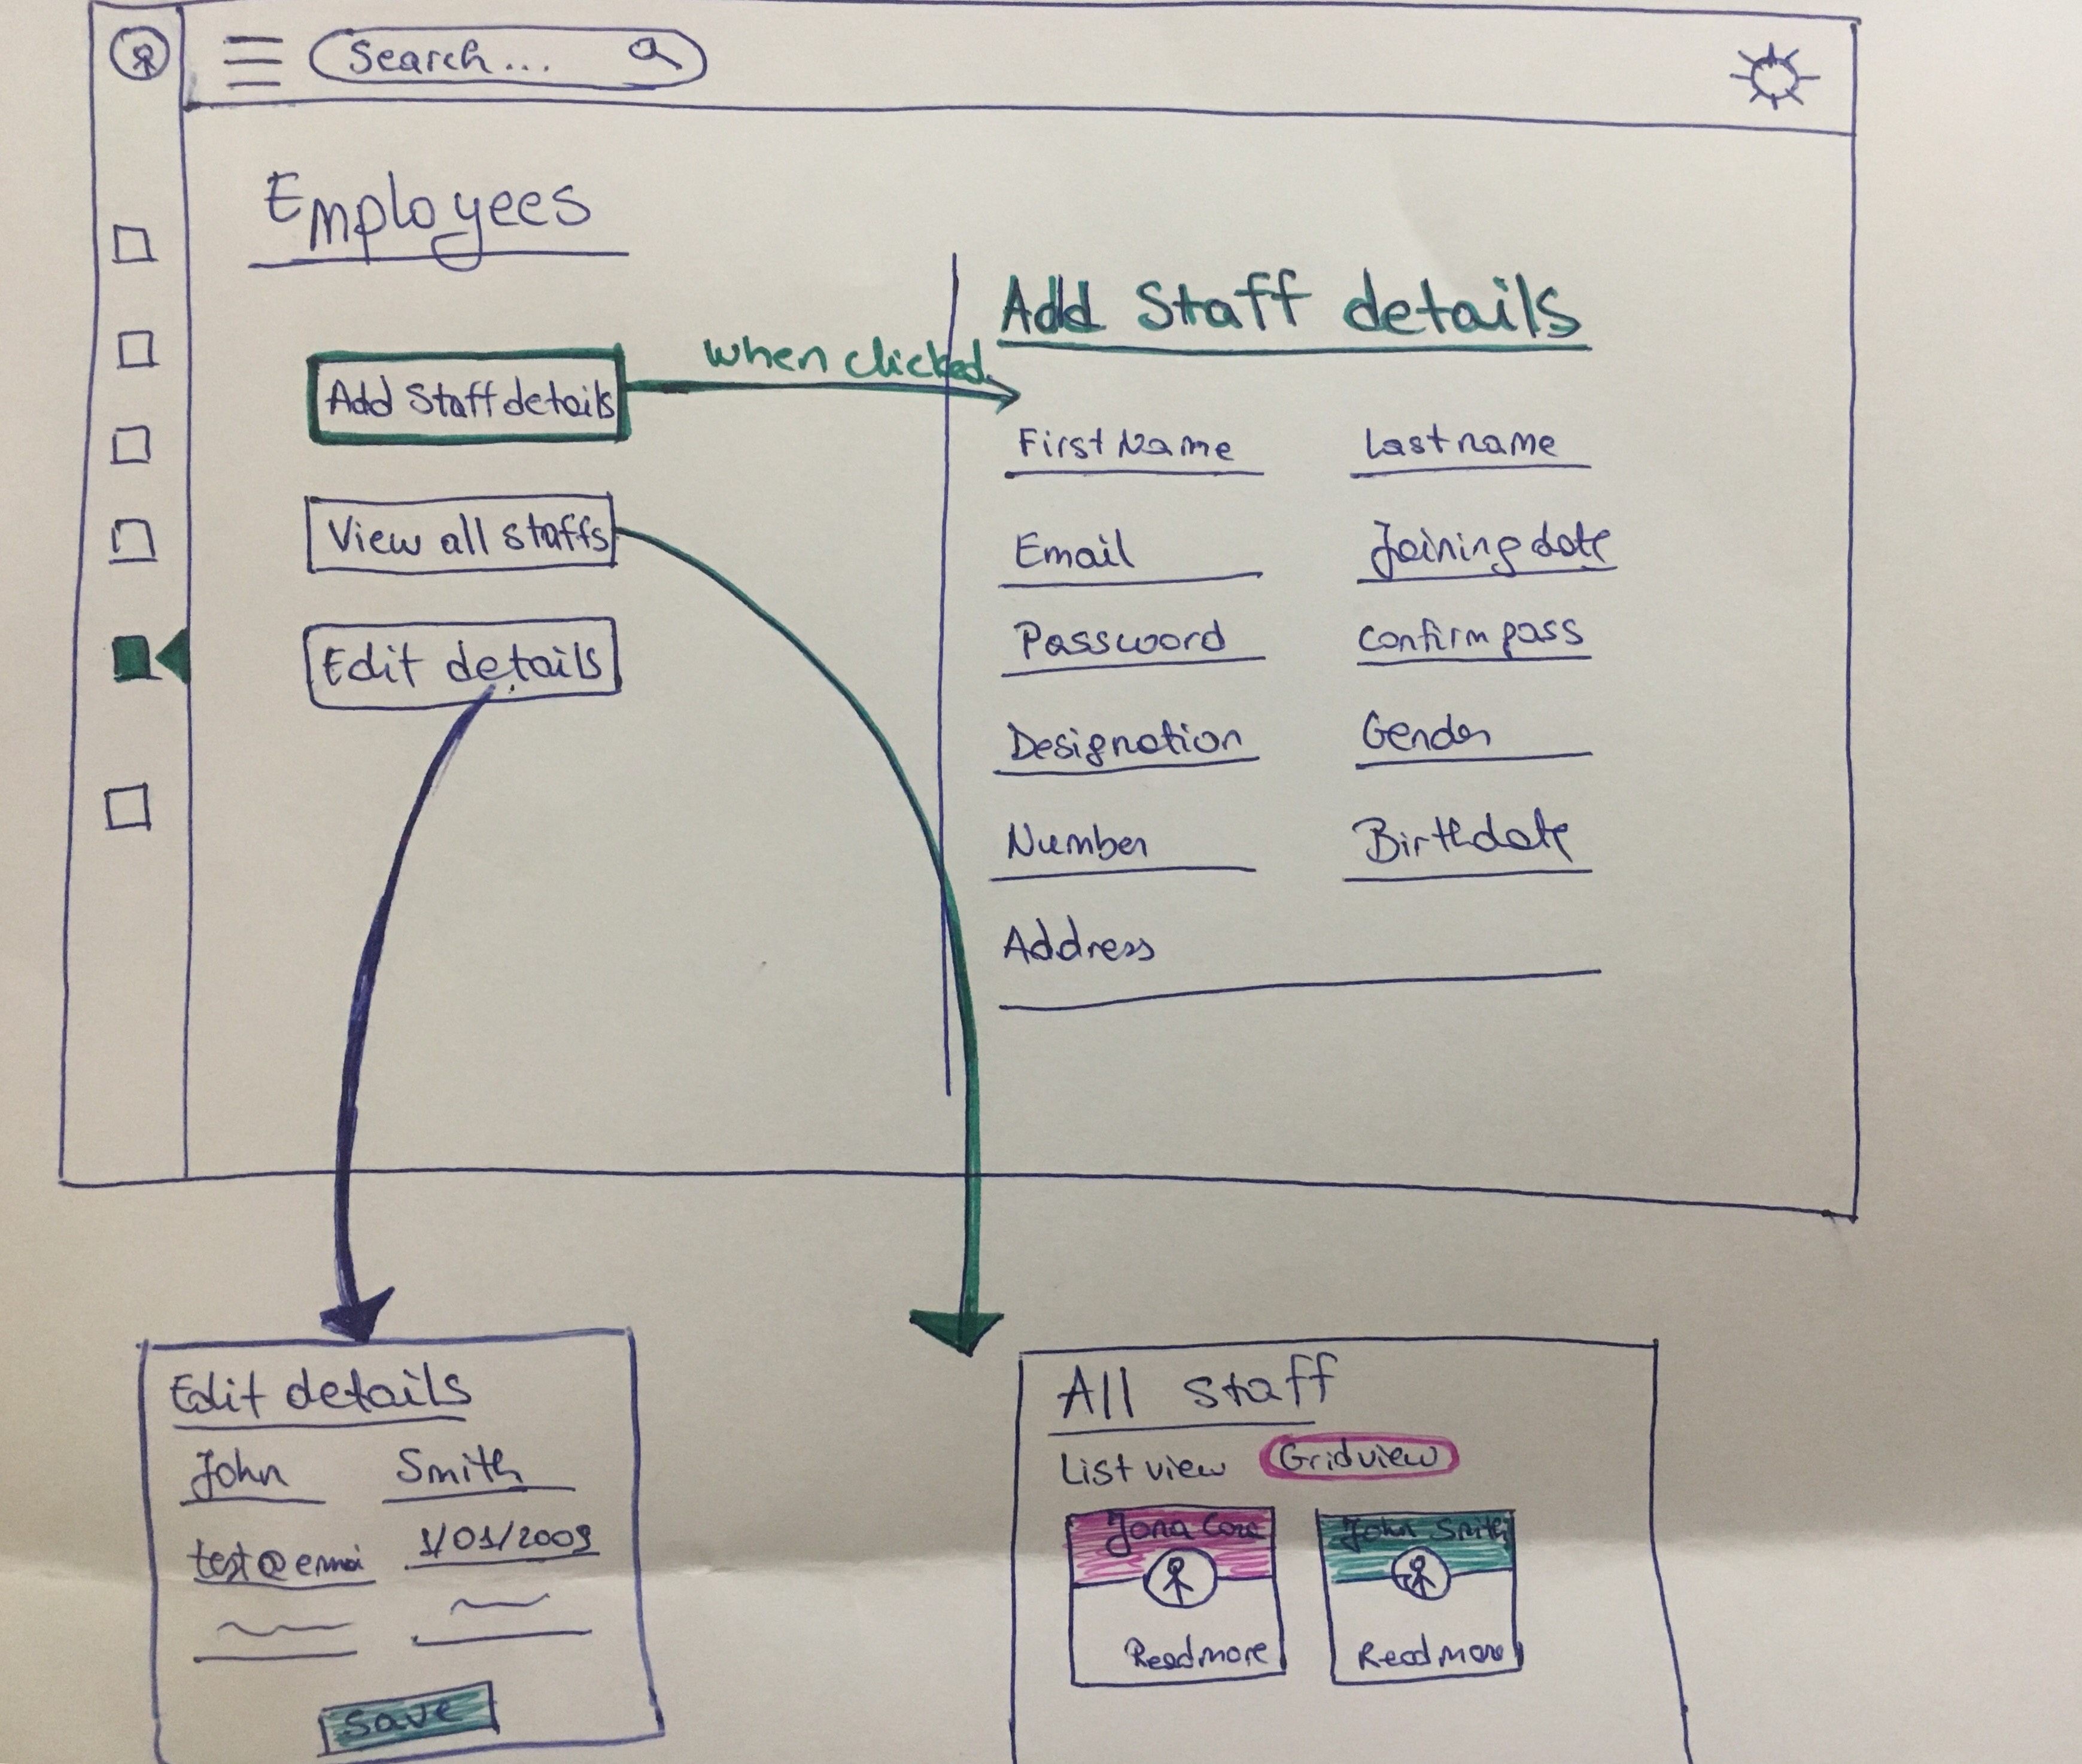 Search...
Employees
Add Staff details
when clicked
Add Staff details
View all staffs
Edit details
First Name
Last name
Email
Joining date
Password
Confirm pass
Designation
Gender
Number
Birthdate
Address
Edit details
John
Smith
test@emai
1/01/2009
Save
All staff
List view
Gridview
Jona
John Smith
Read more
Read more